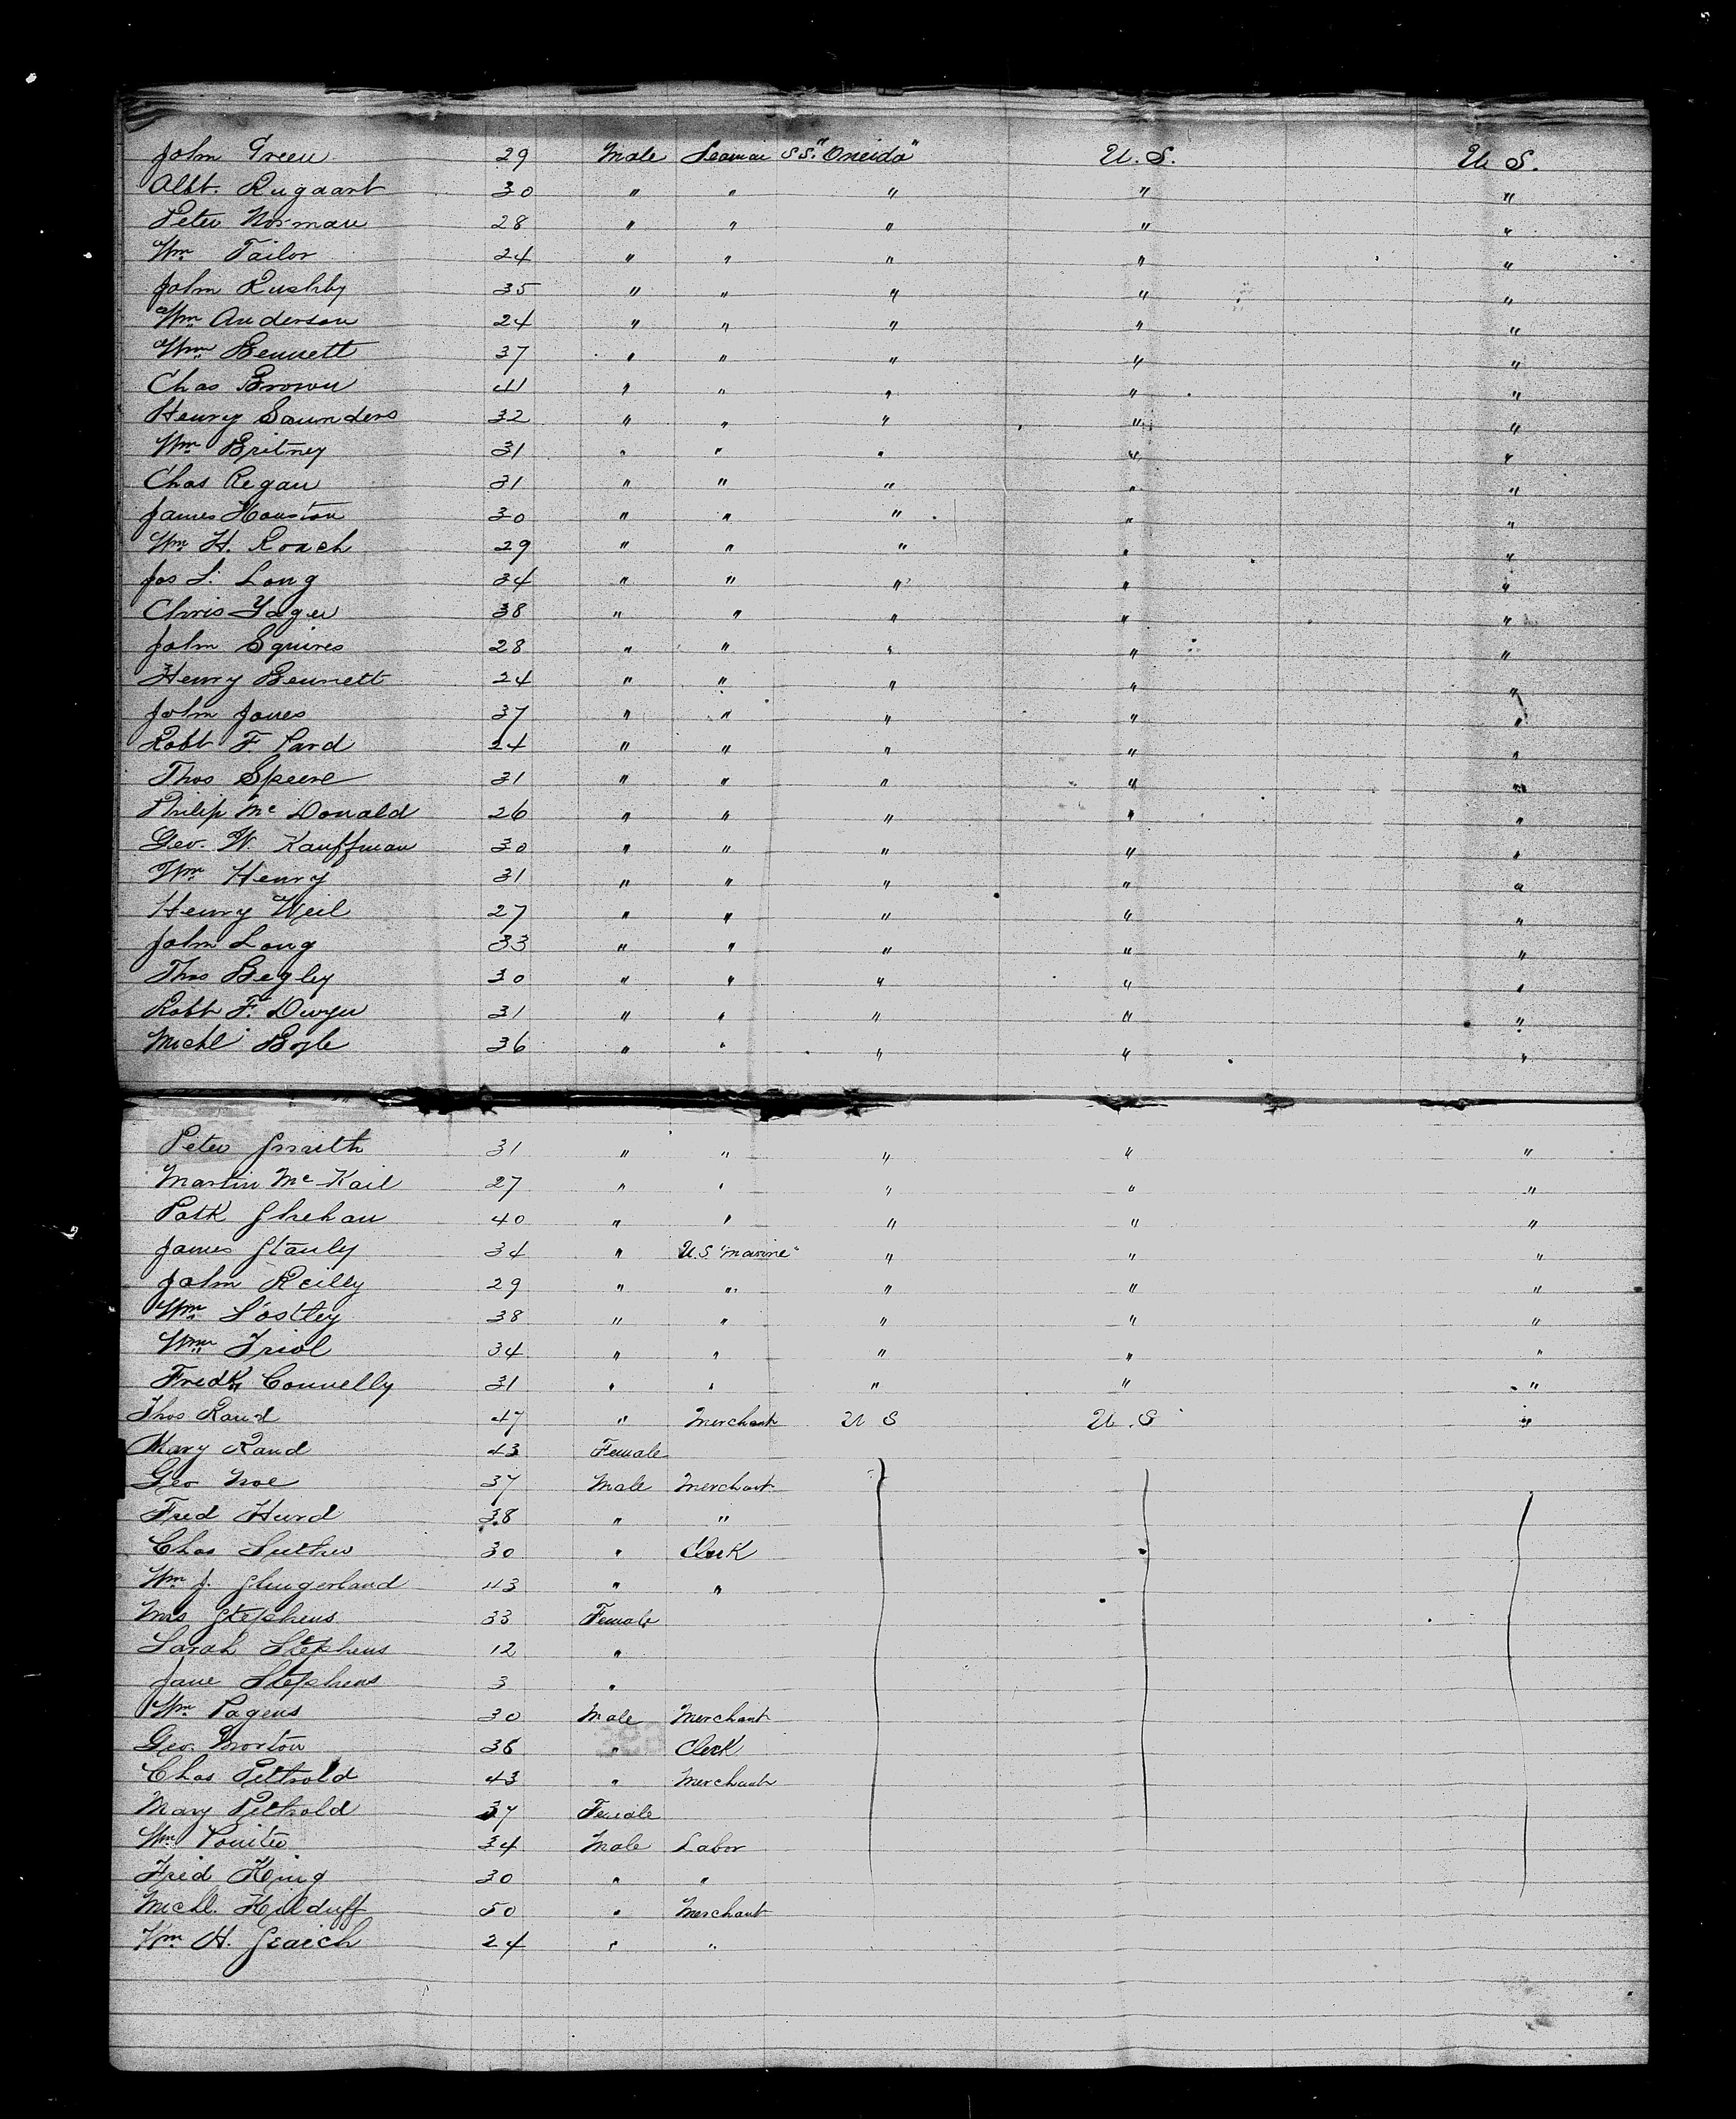 John Green 29 Male Seaman S.S. "Oneida" U.S. U.S.
Albt. Rugaart 30 " " " " "
Peter Norman 28 " " " " "
Wm Tailor 24 " " " " "
John Rushby 35 " " " " "
Wm Anderson 24 " " " " "
Wm Bennett 37 " " " " "
Chas Brown 41 " " " " "
Henry Saunders 32 " " " " "
Wm Britney 31 " " " " "
Chas Regan 31 " " " " "
James Houston 30 " " " " "
Wm H. Roach 29 " " " " "
Jas S. Long 34 " " " " "
Chris Yager 38 " " " " "
John Squires 28 " " " " "
Henry Bennett 24 " " " " "
John Jones 37 " " " " "
Robt F. Pard 24 " " " " "
Thos Speere 31 " " " " "
Philip McDonald 26 " " " " "
Geo. W. Kauffman 30 " " " " "
Wm Henry 31 " " " " "
Henry Weil 27 " " " " "
John Long 33 " " " " "
Thos Begley 30 " " " " "
Robt F. Dwyer 31 " " " " "
Michl Boyle 36 " " " " "
Peter Smith 31 " " " " "
Martin McKail 27 " " " " "
Patk Shehan 40 " " " " "
James Stanly 34 " U.S. "Marine" " " "
John Reilly 29 " " " " "
Wm Lostley 38 " " " " "
Wm 34 " " " " "
Fredk Connelly 31 " " " " "
Thos Rand 47 " Merchant U S U.S "
Mary Rand 43 Female
Geo Noe 37 Male Merchant
Fred Hurd 38 " "
Chas 30 " Clerk
Wm J. Slingerland 43 " "
Mrs Stephens 33 Female
Sarah Stephens 12 "
Jane Stephens 3 "
Wm Pagens 30 Male Merchant
Geo. Morton 38 " Clerk
Chas Petthold 43 " Merchant
Mary Petthold 37 Female
Wm 34 Male Labor
Fred King 30 " "
Michl. Kilduff 50 " Merchant
Wm H. 24 " "